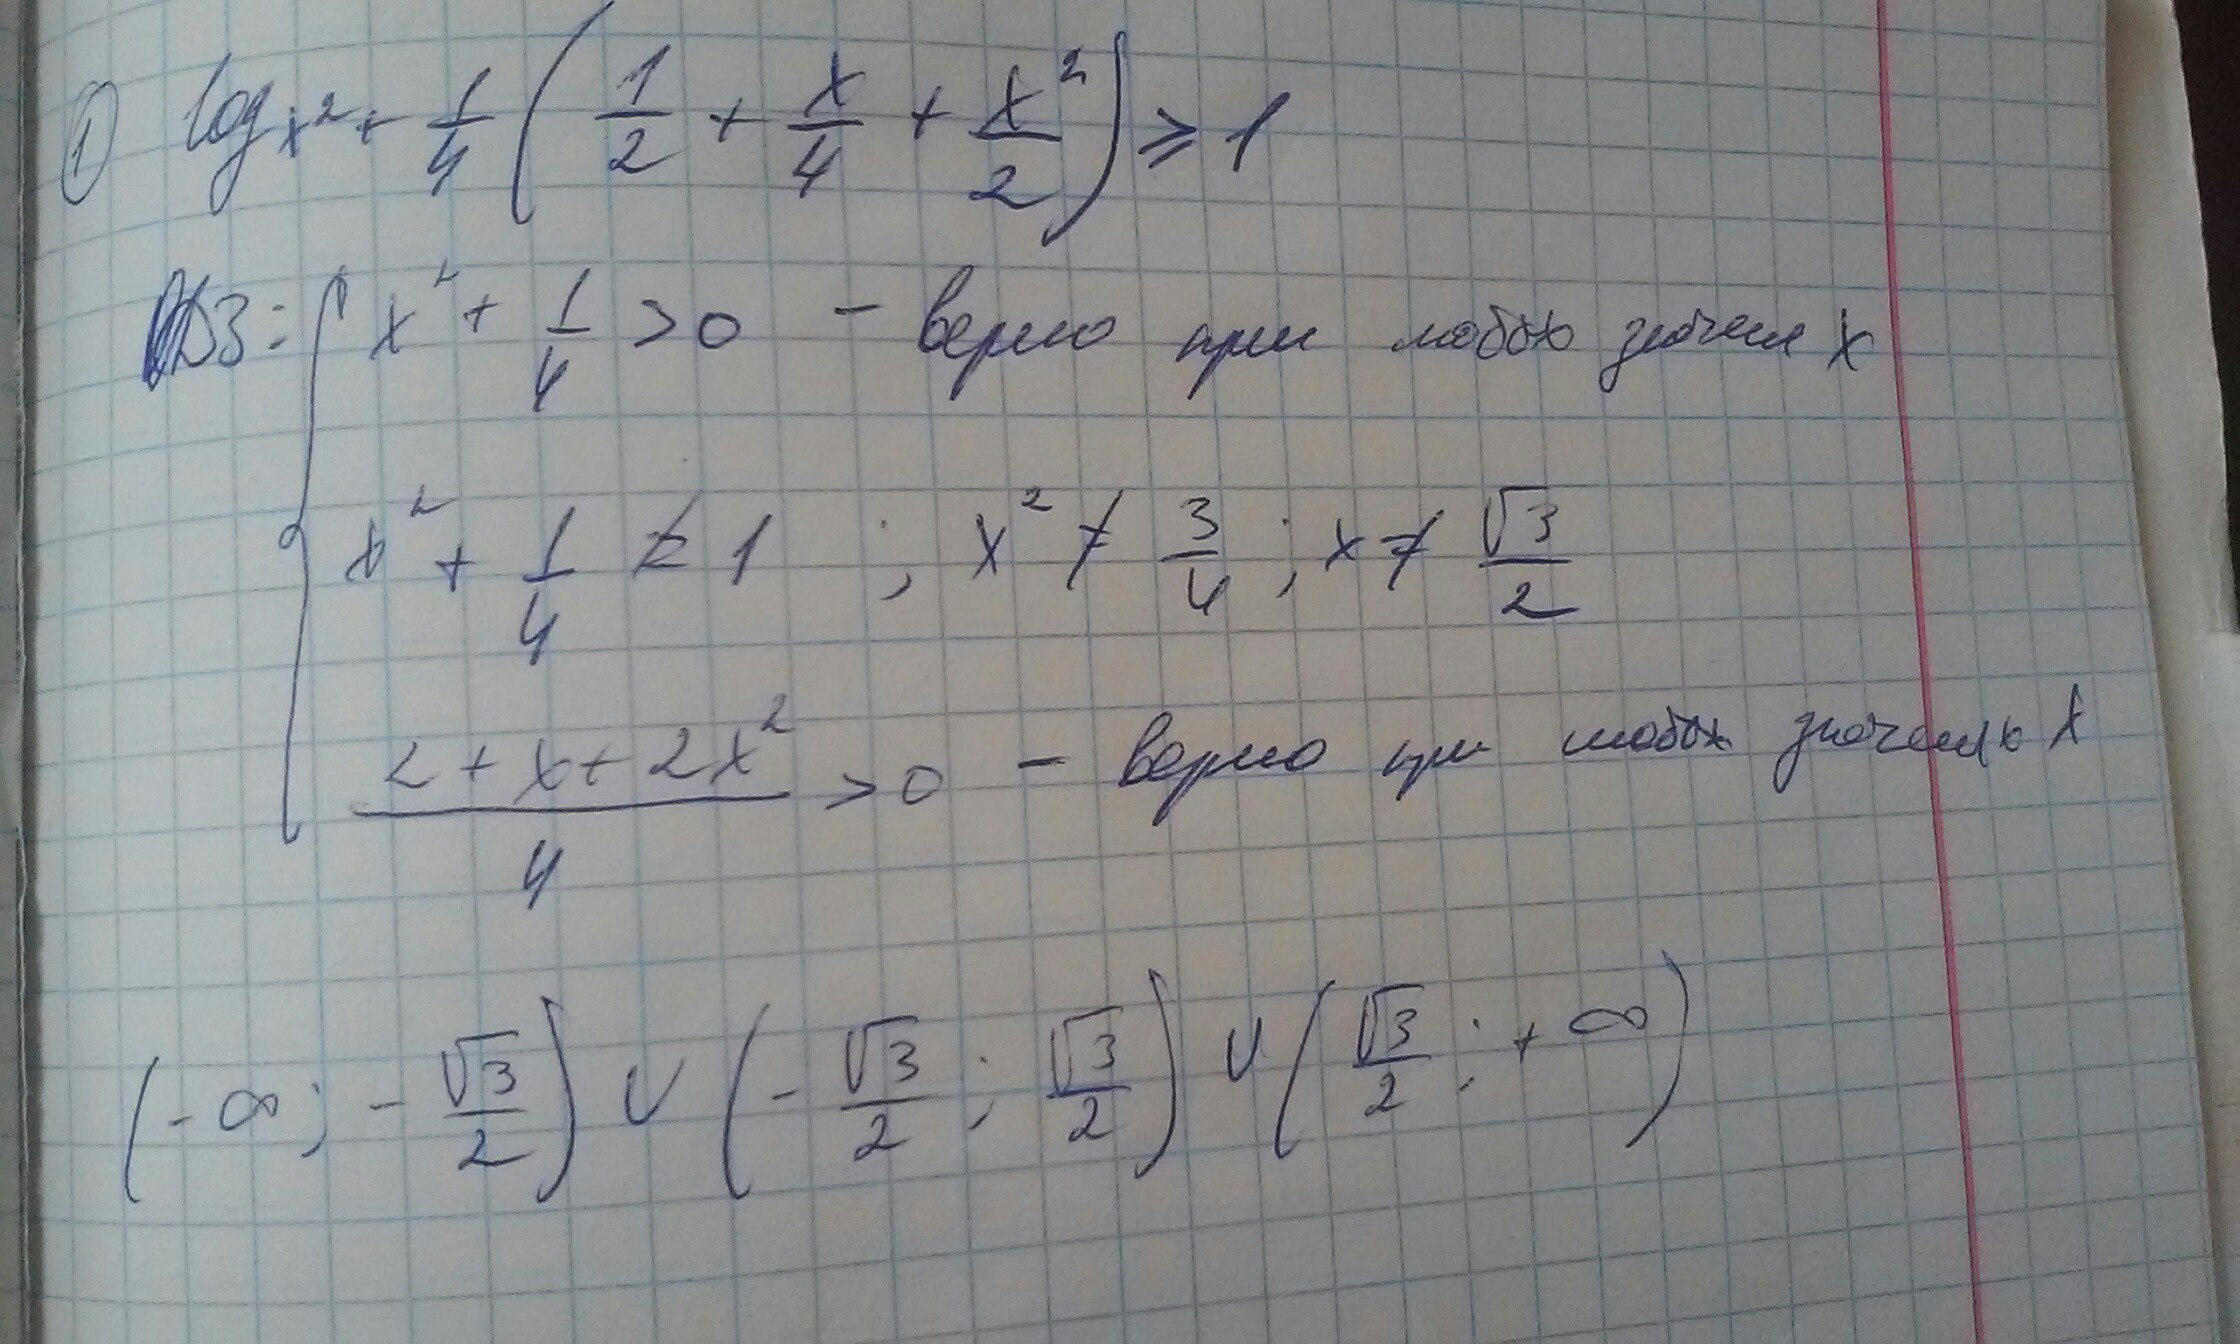 ① log x² + 1/4 (1/2 + x/4 + x²/2) ≥ 1
ОДЗ: { x² + 1/4 > 0 - верно при любых значения x
x² + 1/4 ≠ 1 ; x² ≠ 3/4 ; x ≠ √3/2
(2 + x + 2x²)/4 > 0 - верно при любых значениях x
(-∞; -√3/2) ∪ (-√3/2; √3/2) ∪ (√3/2; +∞)